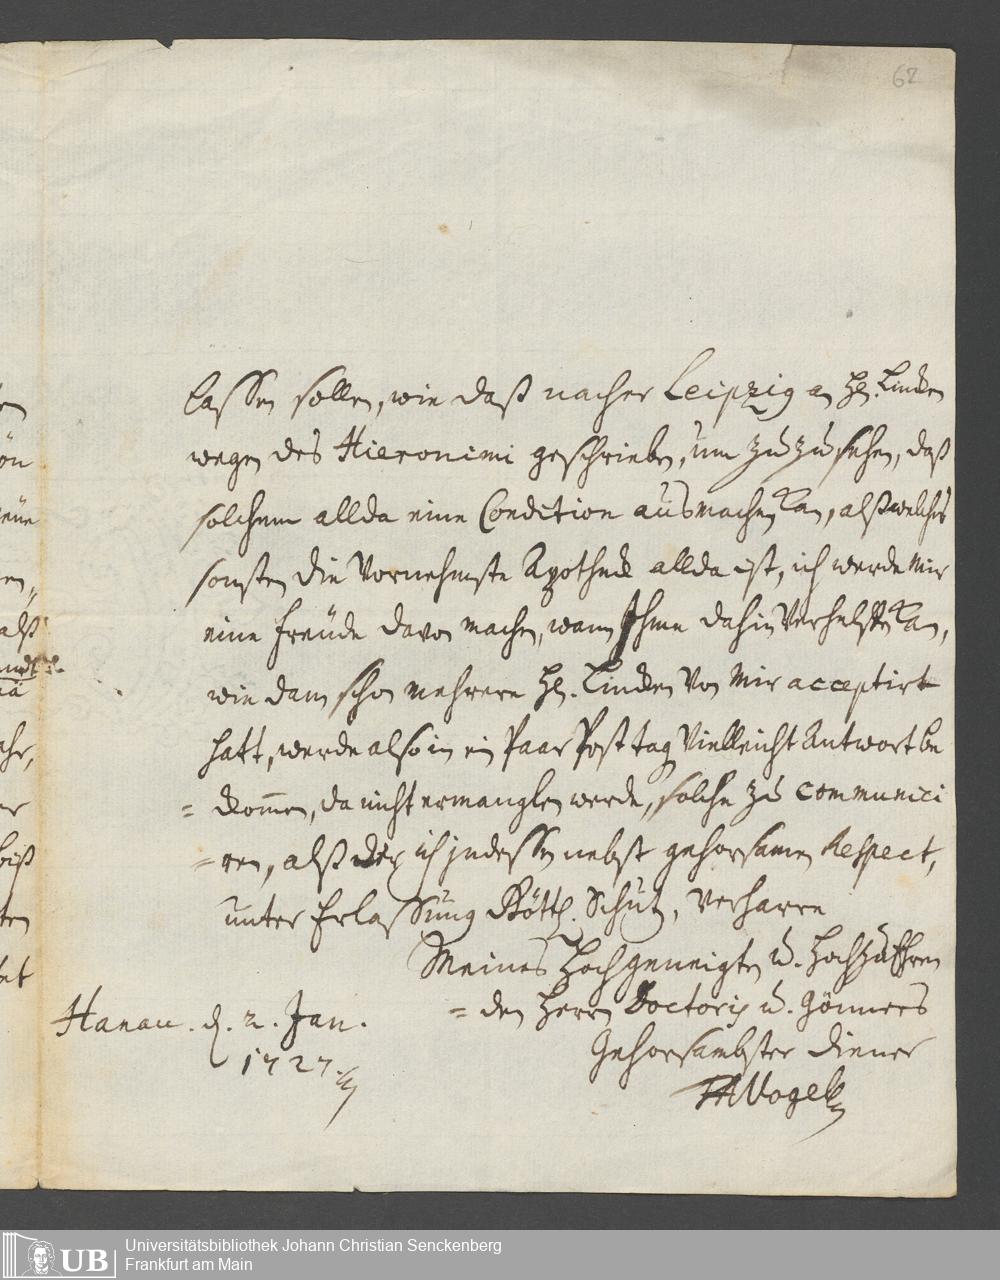 62
lassen sollen, wie daß nacher Leipzig an H. Lincken
wegen des Hieronimi geschrieben, um zu zu sehen, daß
solchem allda eine Condition ausmachen kan, alß welches
sonsten die Vornehmste Apotheck allda ist, ich werde mir
eine freude davon machen, wann Ihme dahin Verhelffen kan,
wie dann schon mehrere H. Lincken Von mir acceptirt
hatt, werde also in ein Paar Post tag Vielleicht Antwort be
= kommen, da nicht ermanglen werde, solche zu communici
= ren, alß der ich indessen nebst gehorsamen Respect,
unter Erlassung Göttl. Schutz, Verharre
Meines Hochgeneigten u. HochzuEhren
= den Herrn Doctoris u. Gönners
Gehorsambster Diener
Hanau. d. 2. Jan.
1727.
Vogel
Universitätsbibliothek Johann Christian Senckenberg
Frankfurt am Main
UB